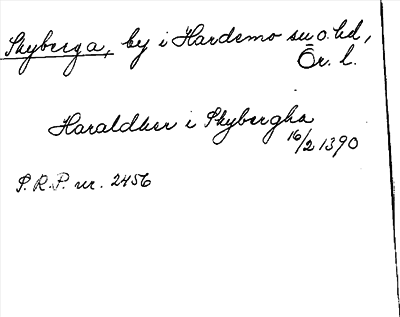 Skyberga, by i Hardemo sn o. hd,
Ör. l.
Haraldher i Skybergha
16/2 1390
S.R.P. nr. 2456